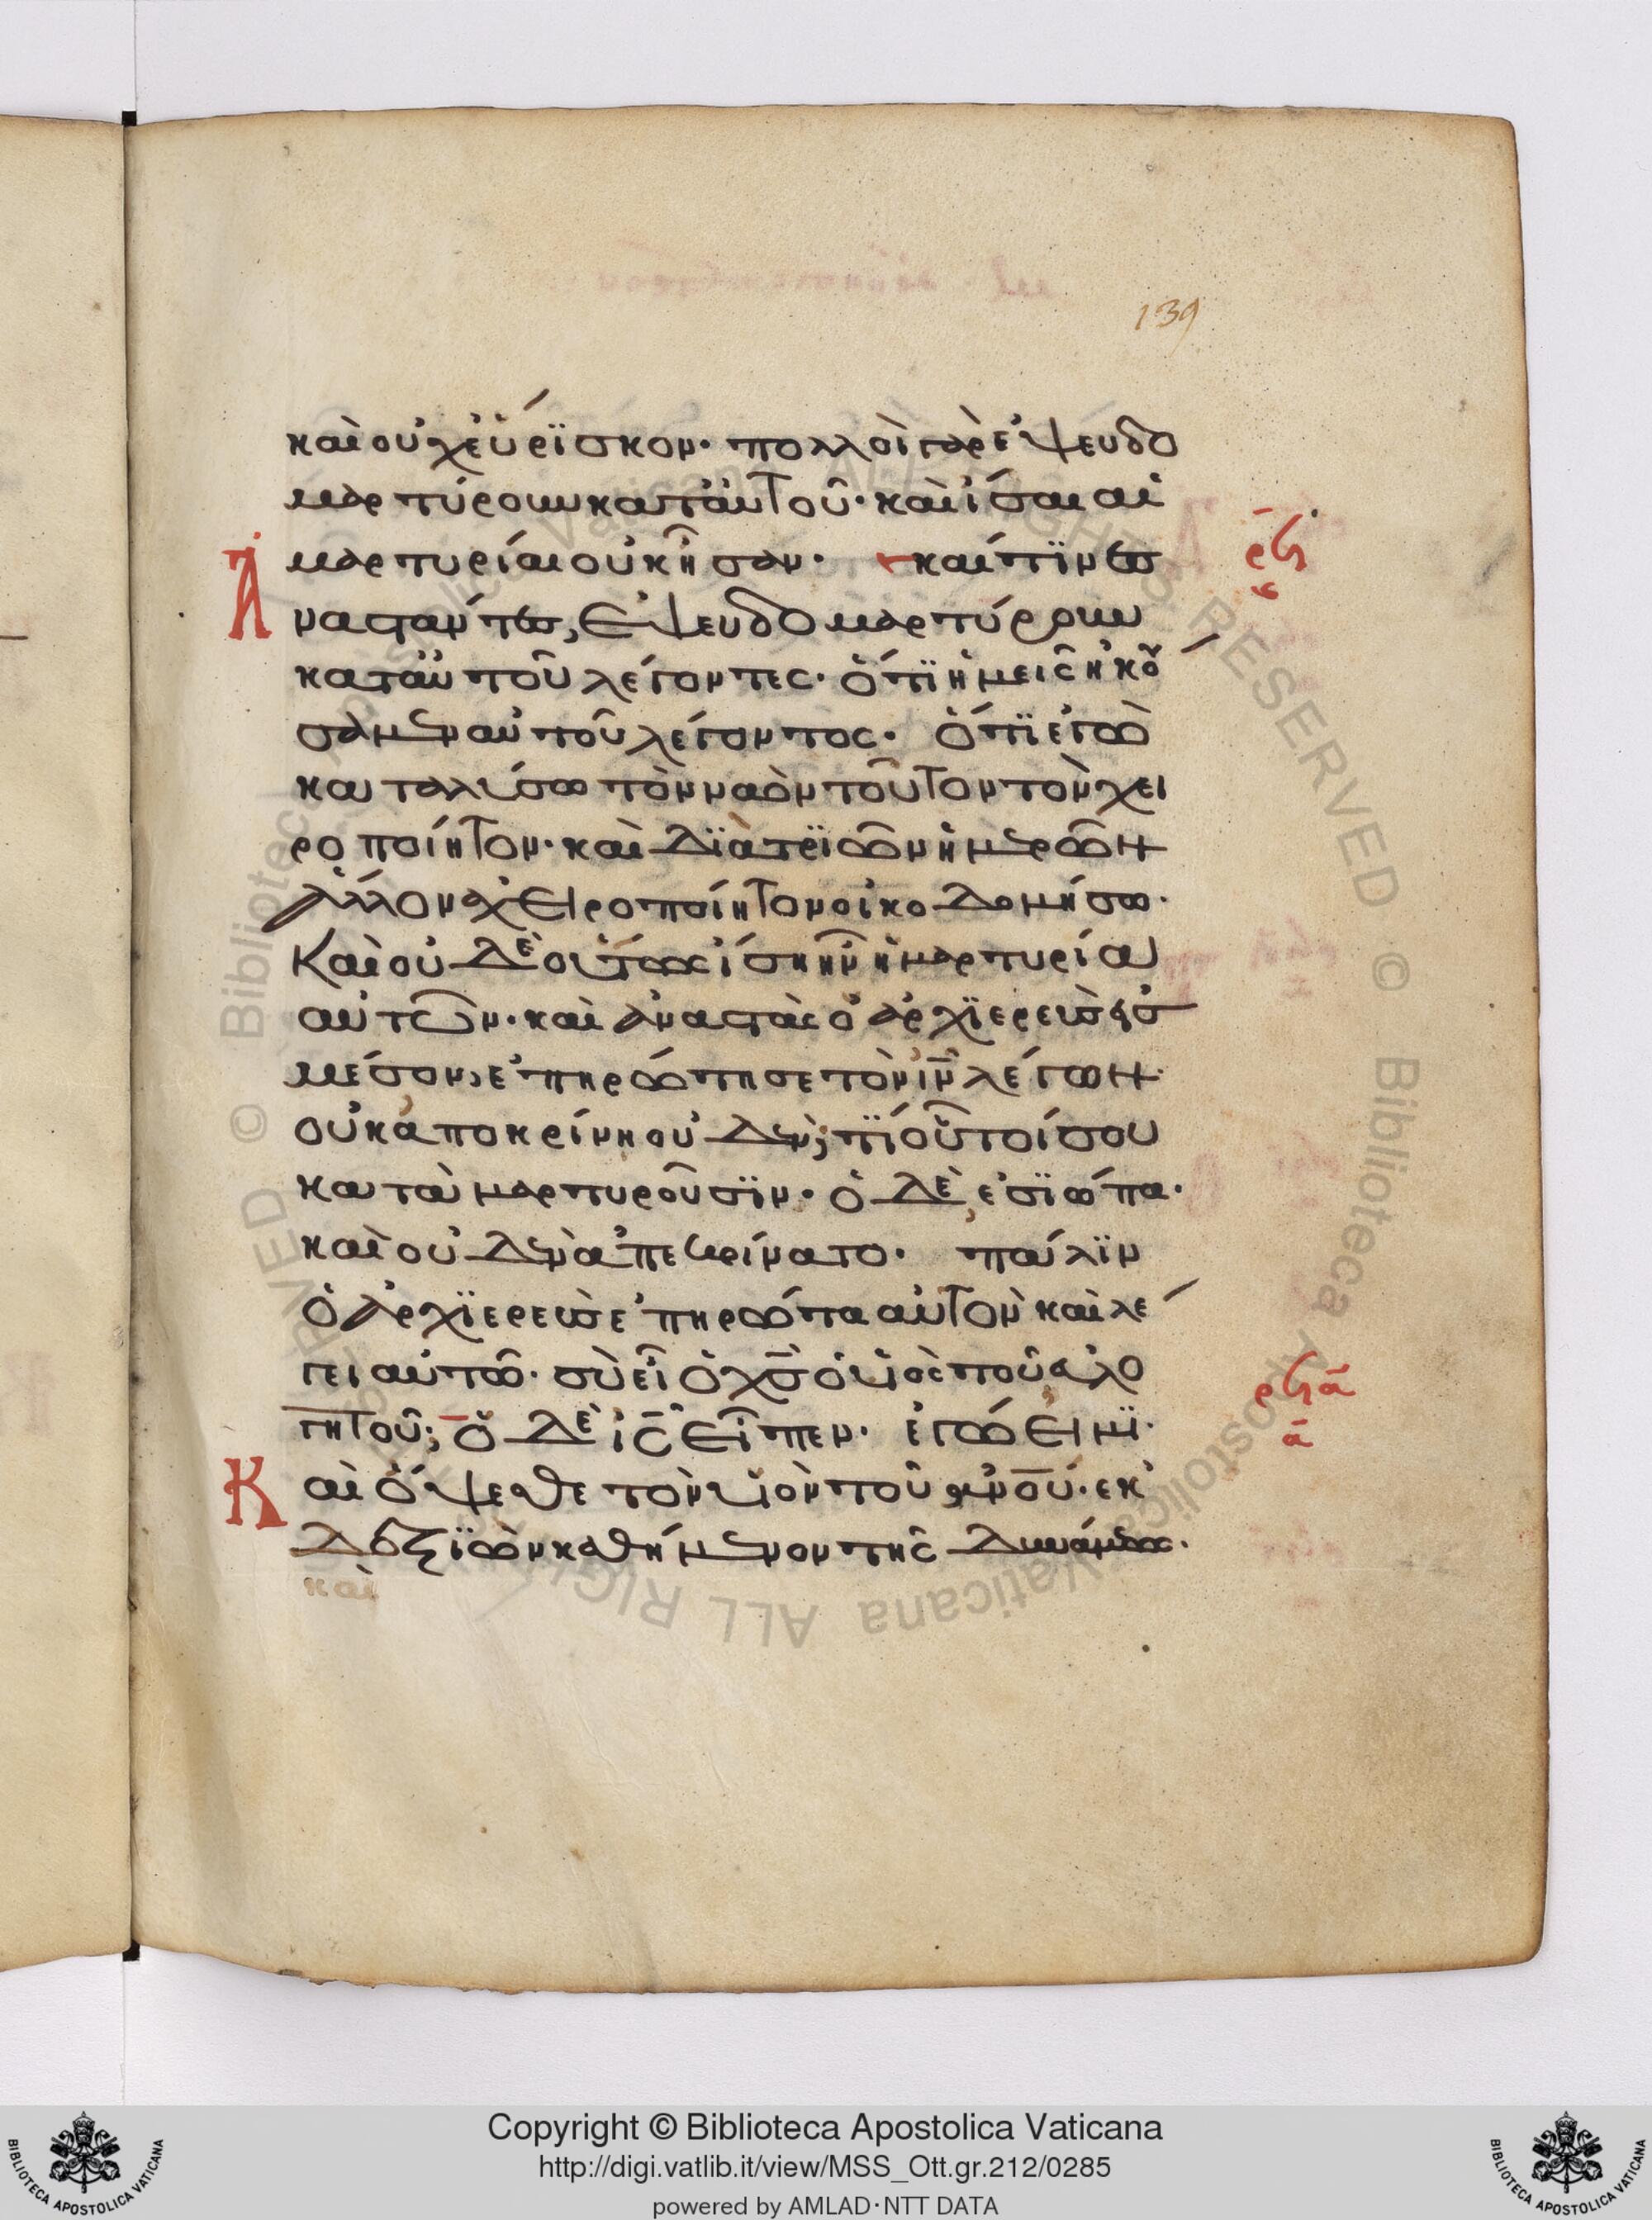 139
καὶ οὐχ εὕρϊσκον· πολλοὶ γὰρ ἐψευδο
μαρτύρουν κατ' αὐτοῦ· καὶ ἴσαι αἱ
μαρτυρίαι οὐκ ἦσαν· καί τϊνες
Ἀναστάντες, ἐψευδομαρτύρουν
κατ' αὐτοῦ λέγοντες· ὅτϊ ἡμεῖς ἠκού
σαμεν αὐτοῦ λέγοντος· ὅτϊ ἐγὼ
καταλύσω τὸν ναὸν τοῦτον τὸν χει
ροποίητον· καὶ δϊὰ τρϊῶν ἡμερῶν
ἄλλον ἀχειροποίητον οἰκοδομήσω·
Καὶ οὐδὲ οὕτως ἴση ἦν ἡ μαρτυρία
αὐτῶν· καὶ ἀναστὰς ὁ ἀρχϊερεὺς εἰς
μέσον, ἐπηρώτησε τὸν ιν λέγων·
οὐκ ἀποκρίνη οὐδέν; τϊ οὗτοί σου
καταμαρτυροῦσϊν· ὁ δὲ ἐσϊώπα·
καὶ οὐδὲν ἀπεκρίνατο· πάλϊν
ὁ ἀρχϊερεὺς ἐπηρώτα αὐτὸν καὶ λέ
γει αὐτῶ· σὺ εἶ ὁ χς ὁ υἱὸς τοῦ εὐλο
γητοῦ; ὁ δὲ ις εἶπεν· ἐγώ εἰμϊ·
Καὶ ὄψεσθε τὸν υἱὸν τοῦ ανου· ἐκ
δεξϊῶν καθήμενον τῆς δυνάμεως·
καὶ
Copyright © Biblioteca Apostolica Vaticana
http://digi.vatlib.it/view/MSS_Ott.gr.212/0285
powered by AMLAD·NTT DATA
BIBLIOTECA APOSTOLICA VATICANA
BIBLIOTECA APOSTOLICA VATICANA